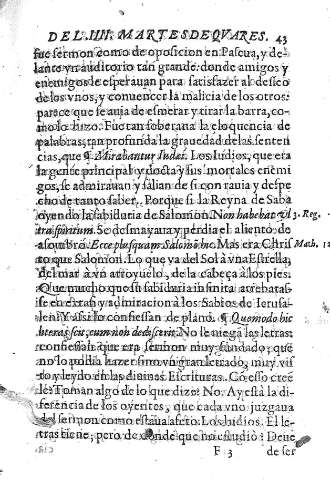 DEL IIII. MARTES DE QVARES. 43
fue sermon como de oposicion en Pascua, y de-
lante vn auditorio tan grande: donde amigos y
enemigos le esperauan para satisfazer al desseo
de los vnos, y conuencer la malicia de los otros:
parece que se auia de esmerar y tirar la barra, co-
mo lo hizo. Fue tan soberana la eloquencia de
palabras, tan profunda la grauedad de las senten-
cias, que ¶ Mirabantur Iudæi. Los Iudios, que era
la gente principal y docta y sus mortales enemi-
gos, se admirauan y salian de si con rauia y despe-
cho de tanto saber. Porque si la Reyna de Saba
oyendo la sabiduria de Salomon. Non habebat vl- 3. Reg.
tra spiritum. Se desmayaua y perdia el aliento de
assombro. Ecce plusquam Salomō hic. Mas era Chris Math. 12
to que Salomon. Lo que va del Sol à vna Estrella,
del mar à vn arroyuelo, de la cabeça à los pies.
Que mucho que su sabiduria infinita arrebatas-
se en extasi y admiracion à los Sabios de Ierusa-
len? Y assi lo confiessan de plano. ¶ Quomodo hic
literas scit, cum non didicerit? No le niega las letras:
confiessan que era sermon muy fundado, que
no lo podia hazer sino vn gran letrado, muy vis
to y leydo en las diuinas Escrituras. Co esso cree
le? Toman algo de lo que dize? No. Ay està la di-
ferencia de los oyentes, que cada vno juzgaua
del sermon como estaua afecto: Los Iudios. El le-
tras tiene, pero de donde que no estudiò? Deue
F 3 de ser